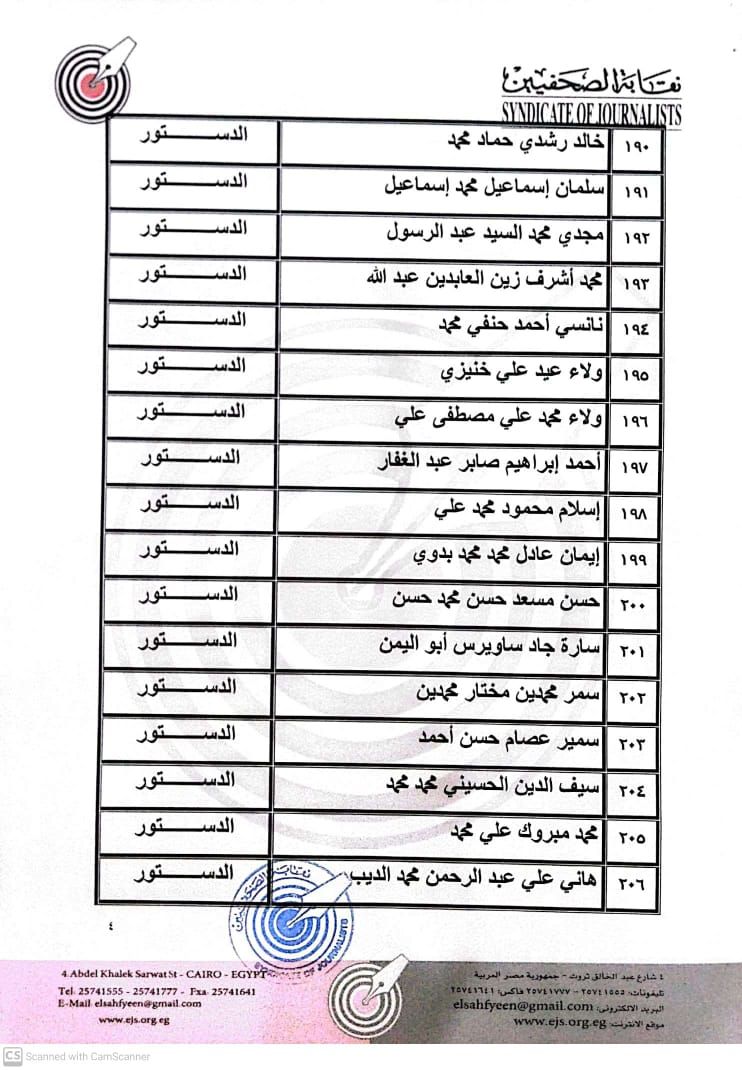 نقابة الصحفيين
SYNDICATE OF JOURNALISTS
١٩٠ خالد رشدي حماد محمد الدستور
١٩١ سلمان إسماعيل محمد إسماعيل الدستور
١٩٢ مجدي محمد السيد عبد الرسول الدستور
١٩٣ محمد أشرف زين العابدين عبد الله الدستور
١٩٤ نانسي أحمد حنفي محمد الدستور
١٩٥ ولاء عيد علي خنيزي الدستور
١٩٦ ولاء محمد علي مصطفى علي الدستور
١٩٧ أحمد إبراهيم صابر عبد الغفار الدستور
١٩٨ إسلام محمود محمد علي الدستور
١٩٩ إيمان عادل محمد محمد بدوي الدستور
٢٠٠ حسن مسعد حسن محمد حسن الدستور
٢٠١ سارة جاد ساويرس أبو اليمن الدستور
٢٠٢ سمر محمدين مختار محمدين الدستور
٢٠٣ سمير عصام حسن أحمد الدستور
٢٠٤ سيف الدين الحسيني محمد محمد الدستور
٢٠٥ محمد مبروك علي محمد الدستور
٢٠٦ هاني علي عبد الرحمن محمد الديب الدستور
٤
نقابة الصحفيين
SYNDICATE OF JOURNALISTS
٤ شارع عبد الخالق ثروت - جمهورية مصر العربية
تليفونات: ٢٥٧٤١٥٥٥ - ٢٥٧٤١٧٧٧ فاكس: ٢٥٧٤١٦٤١
البريد الالكترونى: elsahfyeen@gmail.com
موقع الانترنت: www.ejs.org.eg
4.Abdel Khalek Sarwat St - CAIRO - EGYPT
Tel: 25741555 - 25741777 - Fxa: 25741641
E-Mail: elsahfyeen@gmail.com
www.ejs.org.eg
CS Scanned with CamScanner